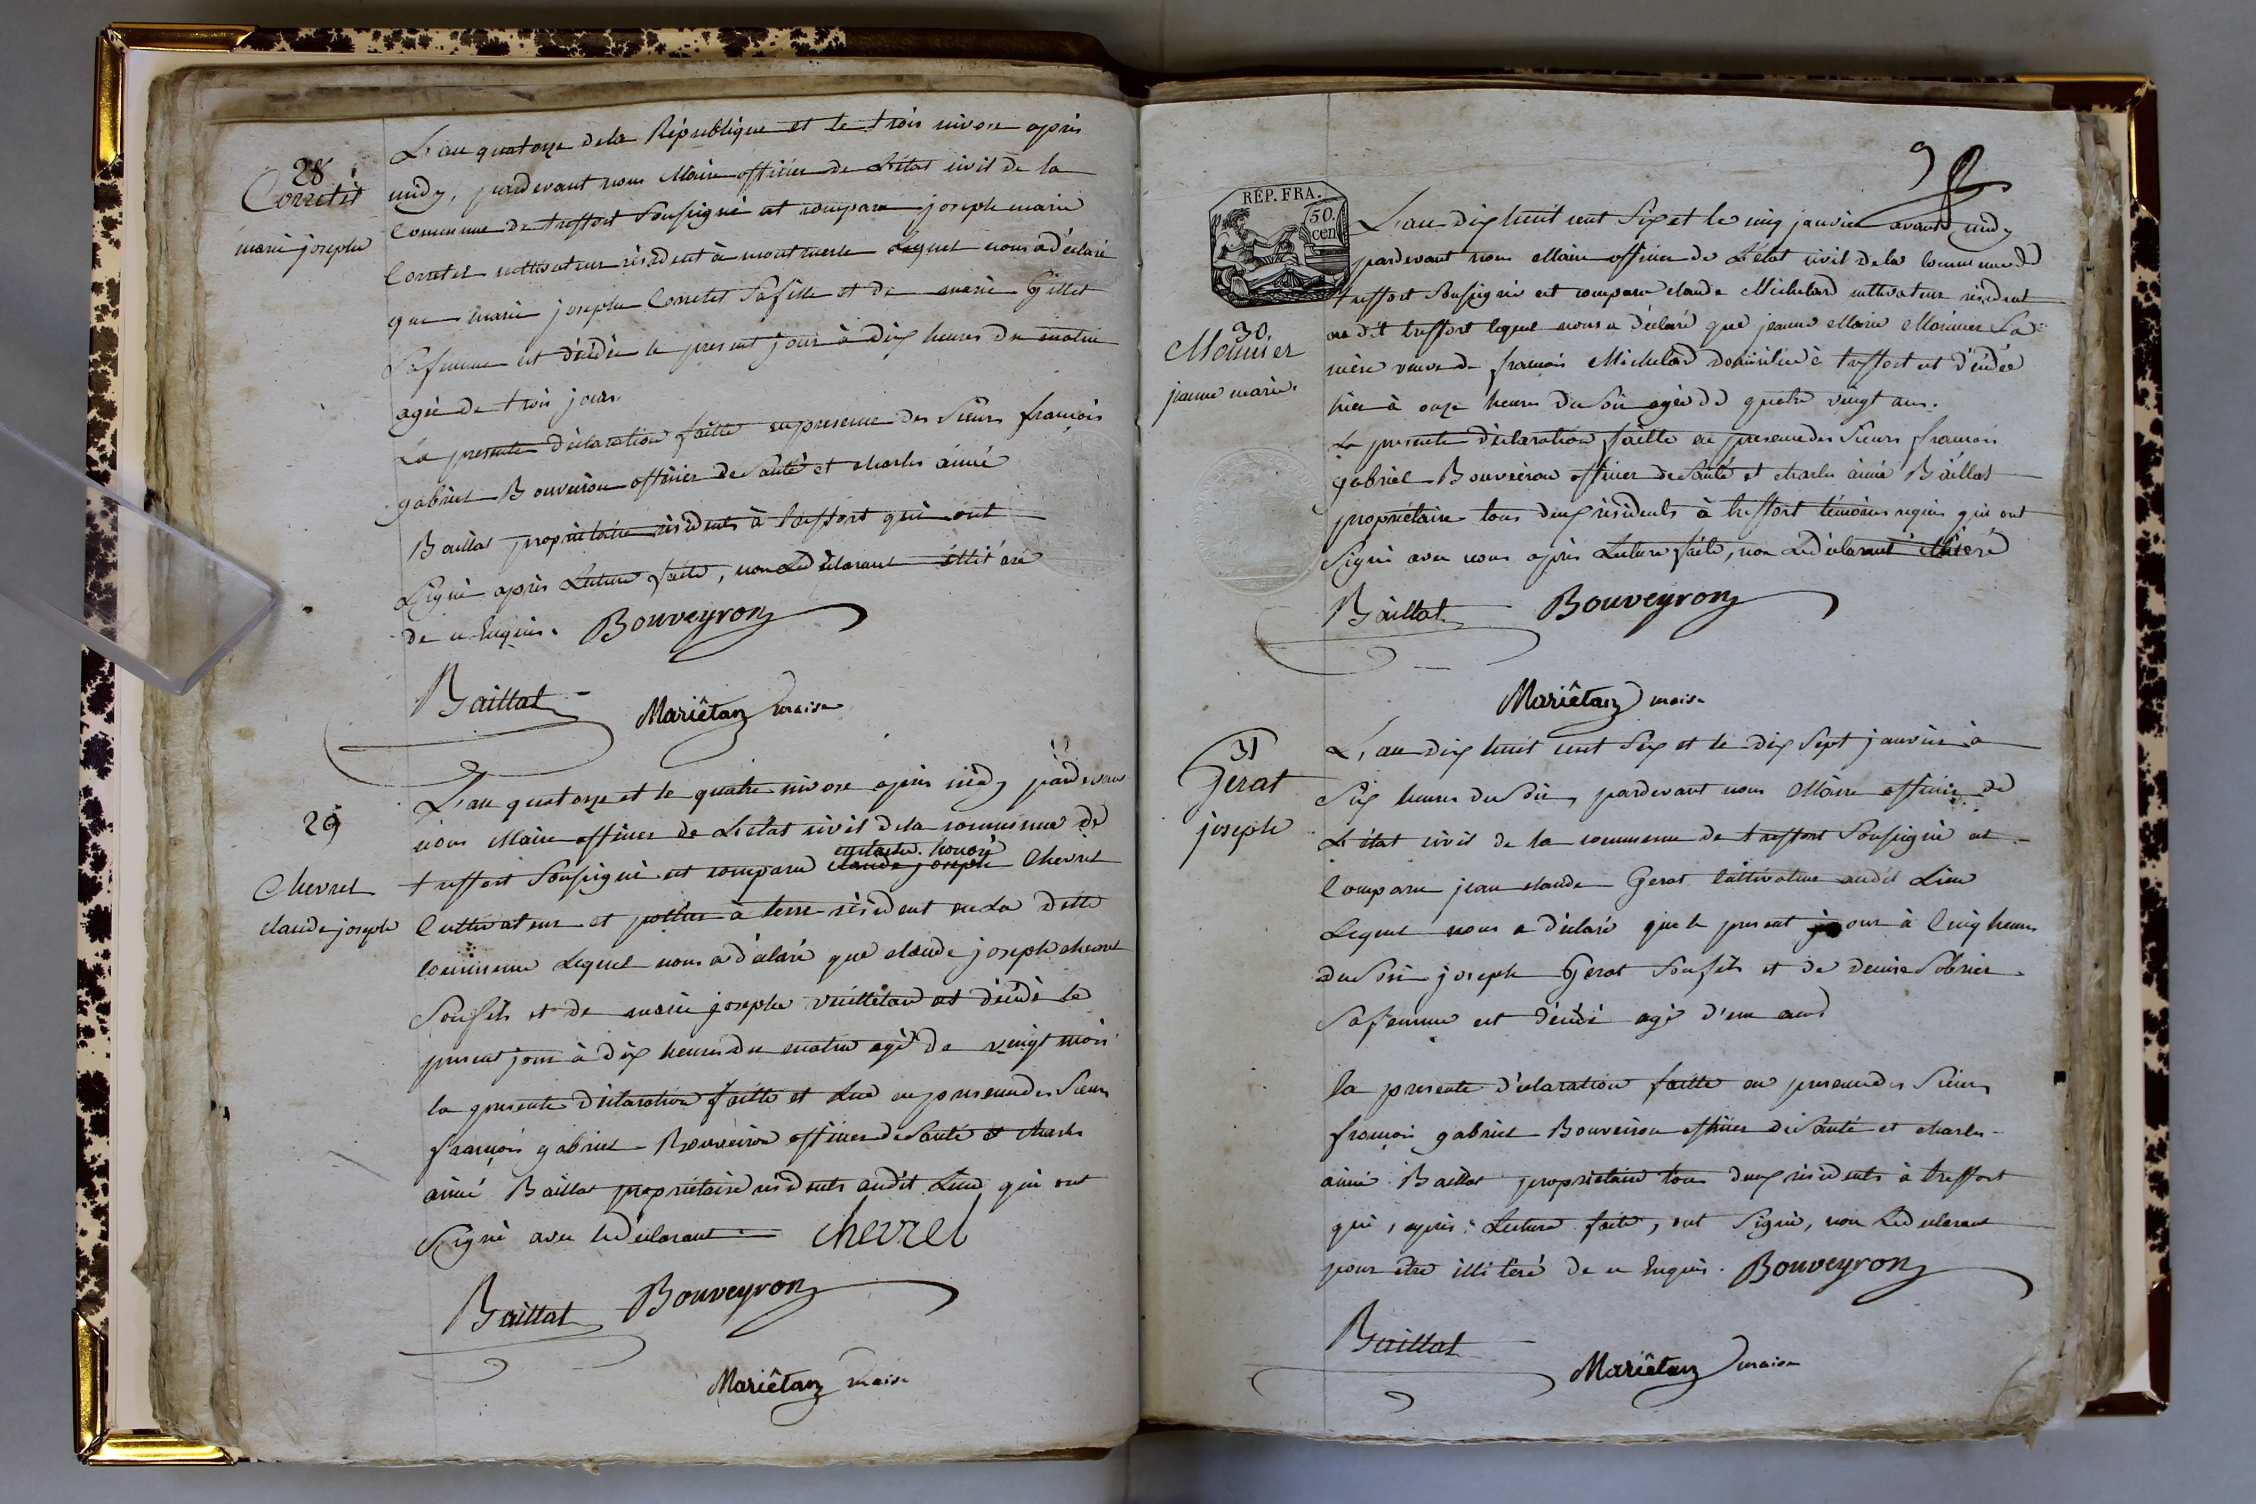 28
Corretet
marie josephe
L'an quatorze dela République et le trois nivose après
midy, pardevant nous Maire officier de L'état civil de la
Commune de treffort Soussigné est comparu joseph marie
Corretet cultivateur résident à montmerle Lequel nous a déclaré
que marie josephe Corretet Sa fille et de marie Gillet
Sa femme est décédée le present jour à dix heures du matin
agée de trois jours
La presente déclaration faitte en presence des Sieurs françois
gabriel Bouveiron officier de Santé et charles aimé
Baillat propriétaire résidents à treffort qui ont
Signé après Lecture faite, non Le déclarant illitéré
de ce Enquis. Bouveyron
Baillat Mariêtan maire
29
Chevrel
claude joseph
L'an quatorze et le quatre nivose après midy pardevant
nous Maire officier de L'état civil dela commune de
honoré
treffort Soussigné est comparu claude joseph Chevrel
Cultivateur et pottier à terre résident en La ditte
commune Lequel nous a déclaré que claude joseph chevrel
Son fils et de marie josephe vuilletan est décédé le
present jour à dix heures du matin agé de vingt mois
la presente déclaration faitte et Lue en presence des Sieurs
françois gabriel Bouveiron officier de Santé et charles
aimé Baillat propriétaire résidents audit Lieu qui ont
Signé avec Le déclarant chevrel
Baillat Bouveyron
Mariêtan maire
9
RÉP. FRA.
50.
cen
30.
Monnier
jeanne marie
L'an dix huit cent Six et le cinq janvier avant midy
pardevant nous Maire officier de L'état civil dela Commune de
treffort Soussigné est comparu claude Michelard cultivateur résident
au dit treffort lequel nous a déclaré que jeanne Marie Monnier Sa
mère veuve de françois Michelard domiciliée à treffort est décédée
hier à onze heures du Soir agée de quatre vingt ans.
La presente déclaration faitte en presence des Sieurs françois
gabriel Bouveiron officier de Santé et charles aimé Baillat
propriétaire tous deux résidents à treffort témoins requis qui ont
Signé avec nous après Lecture faite, non Le déclarant illiteré
Baillat Bouveyron
Mariêtan maire
31
Gerat
joseph
L'an dix huit cent Six et le dix Sept janvier à
Six heures du Soir, pardevant nous Maire officier de
L'état civil de la commune de treffort Soussigné est
Comparu jean claude Gerat Cultivateur audit Lieu
Lequel nous a déclaré que le present jour à Cinq heures
du Soir joseph Gerat Son fils et de denise Sobrier
Sa femme est décédé agé d'un and
la presente déclaration faitte en presence des Sieurs
françois gabriel Bouveiron officier de Santé et charles
aimé Baillat propriétaire tous deux résidents à treffort
qui, après Lecture faite, ont Signé, non Le déclarant
pour être illiteré de ce Enquis. Bouveyron
Baillat
Mariêtan maire